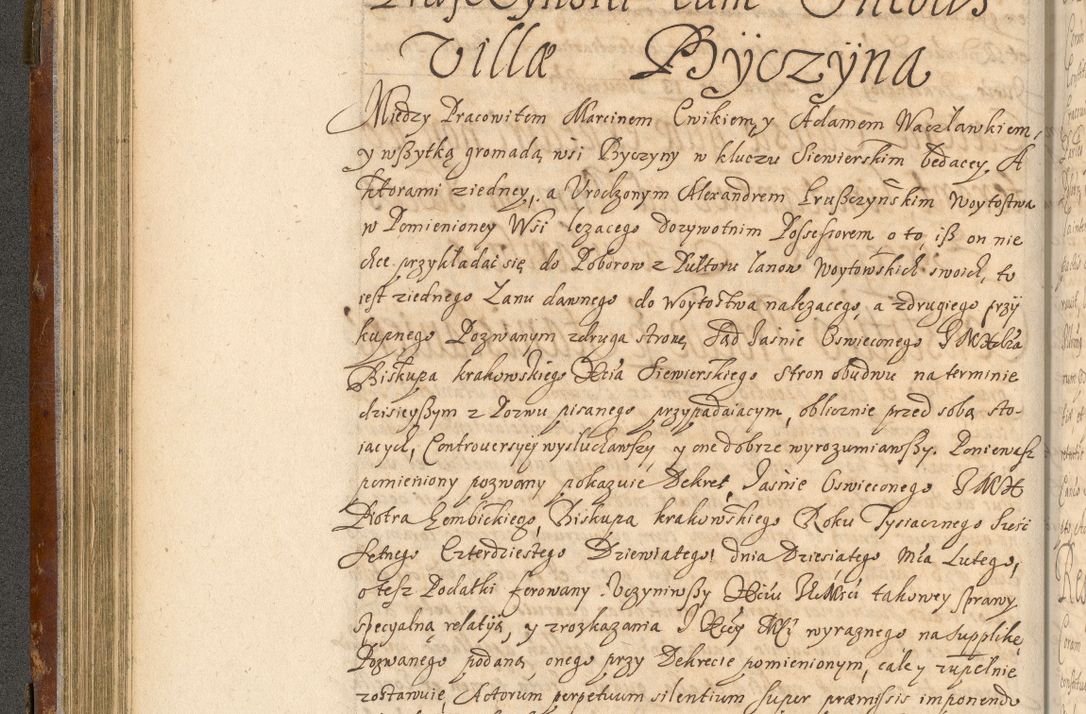 cum Incolis
Villæ Byczyna
Między Pracowitem Marcinem Cwikiem, y Adamem Waczławkiem,
y wszytką gromadą wsi Byczyny w kluczu Siewierskim bedacey, A
ktorami ziedney, a Vrodzonym Alexandrem Pruszczyńskim Woytostwa
w Pomienioney Wsi lezacego dozywotnim Possessorem o to, isz on nie
chce przykładać się do Poborow z Pułtoru łanow Woytowskich swoich, to
iest ziednego Łanu dawnego do Woytostwa nalezacego, a zdrugiego przy
kupnego Pozwanym zdruga stronę, Sąd Jaśnie Oswieconego
Biskupa krakowskiego Xcia Siewierskiego stron obudwu na terminie
dzisieyszym z Pozwu pisanego przypadaiacym, oblicznie przed sobą sto-
iacych, Controversyey wysłuchawszy y one dobrze wyrozumiawszy. Poniewasz
pomieniony pozwany pokazuie Dekret Jaśnie Oswieconego
Piotra Gembickiego, Biskupa krakowskiego Roku Tysiacznego Sześć
Setnego Czterdziestego Dziewiatego, dnia Dziesiatego Mca Lutego,
o tesz Podatki ferowany. Vczyniwszy Xciu takowey sprawy
specyalną relatyą, y zrozkazania J Xcey Mći wyraznego na supplikę
Pozwanego podaną onego przy Dekrecie pomienionym, cale y zupełnie
zostawuie, Actorum perpetuum silentium super præmissis imponendo